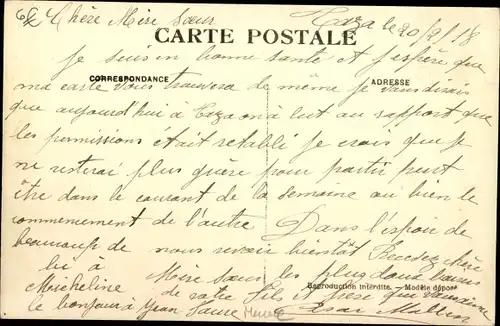 Chère Mère Sœur
Taza le 20/9/18
CARTE POSTALE
Je suis en bonne santé et j'espère que
CORRESPONDANCE
ADRESSE
ma carte vous trouvera de même je vous dirais
que aujourd'hui à Taza on a lut au rapport que
les permissions était retabli je crois que je
ne resterai plus guère pour partir peut
être dans le courant de la semaine ou bien le
commencement de l'autre Dans l'espoir de
beaucoup de nous revoir bientôt Recevez chère
Mère Sœur les plus doux baisers
de votre fils et frère qui
à
Micheline
le bonjour à
Reproduction interdite. - Modèle déposé